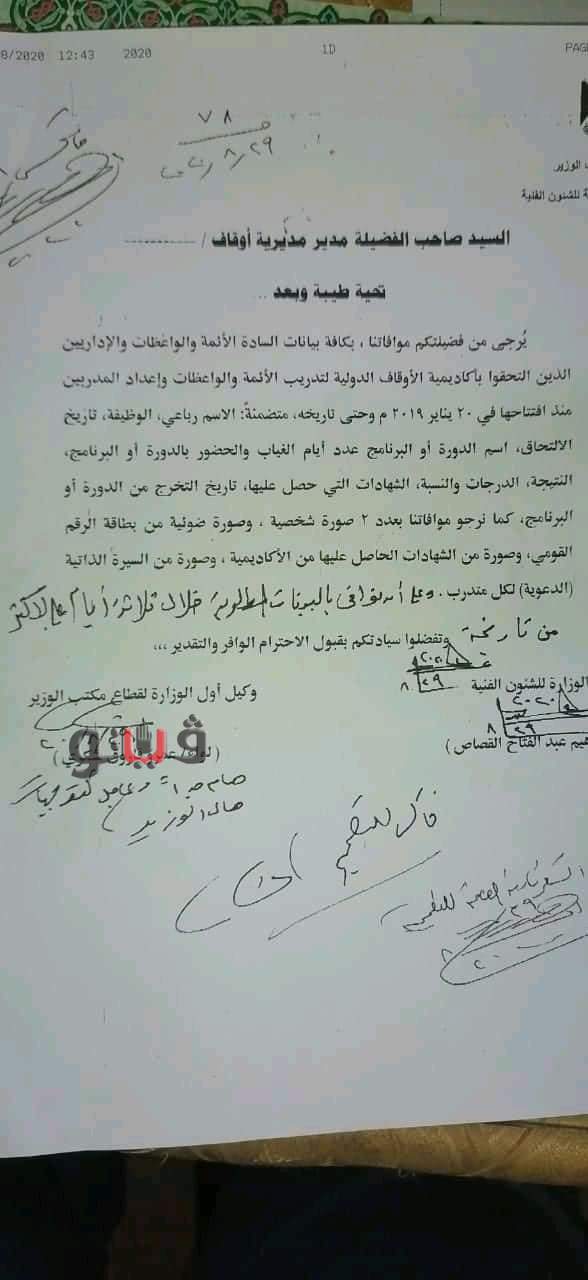 8/2020 12:43 2020 1D PAGE
فاكس
٧٨
٨/٢٩
الوزير
ة للشئون الفنية
السيد صاحب الفضيلة مدير مديرية أوقاف / ----------
تحية طيبة وبعد ..
يُرجى من فضيلتكم موافاتنا ، بكافة بيانات السادة الأئمة والواعظات والإداريين
الذين التحقوا بأكاديمية الأوقاف الدولية لتدريب الأئمة والواعظات وإعداد المدربين
منذ افتتاحها في ٢٠ يناير ٢٠١٩ م وحتى تاريخه، متضمنةً: الاسم رباعي، الوظيفة، تاريخ
الالتحاق، اسم الدورة أو البرنامج عدد أيام الغياب والحضور بالدورة أو البرنامج،
النتيجة، الدرجات والنسبة، الشهادات التي حصل عليها، تاريخ التخرج من الدورة أو
البرنامج، كما نرجو موافاتنا بعدد ٢ صورة شخصية ، وصورة ضوئية من بطاقة الرقم
القومي، وصورة من الشهادات الحاصل عليها من الأكاديمية ، وصورة من السيرة الذاتية
(الدعوية) لكل متدرب . وعلى أن نوافى بالبيانات المطلوبة خلال ثلاثة أيام على الأكثر
من تاريخه
وتفضلوا سيادتكم بقبول الاحترام الوافر والتقدير ،،،
الوزارة للشئون الفنية
٢٠٢٠
٨ ٢٩
وكيل أول الوزارة لقطاع مكتب الوزير
٢٠٢٠
٨ ٢٩
هيم عبد الفتاح القصاص )
فيتو
فاكس للتعميم